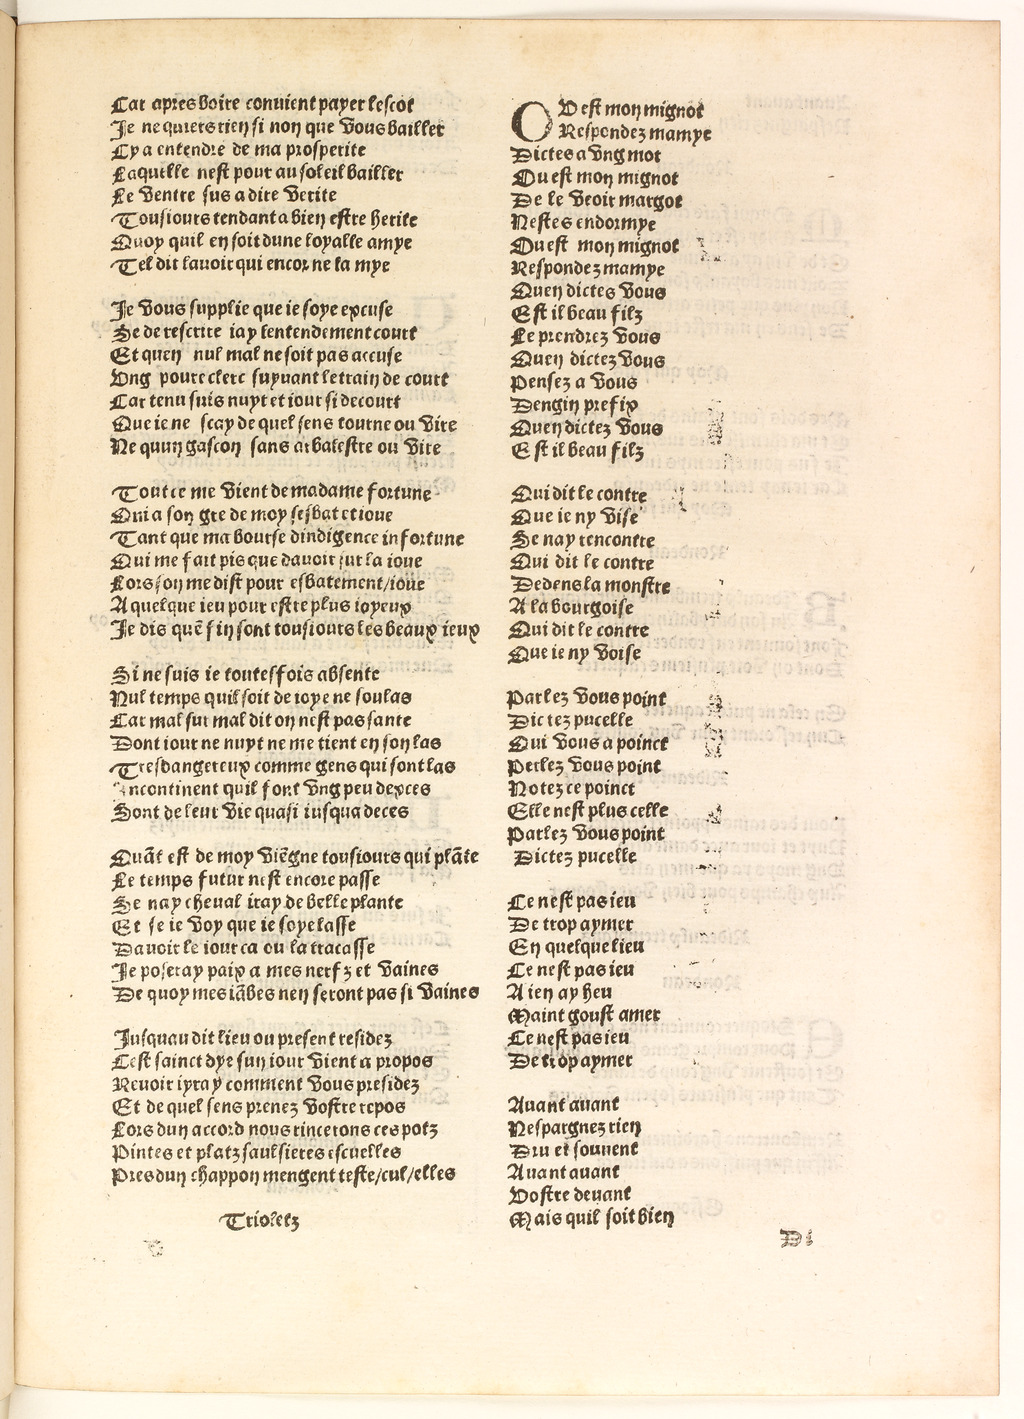 Car apres boire conuient payer lescot
Je ne quiers rien si non que vous bailler
Cy a entendre de ma prosperite
Laquelle nest pour au soleil bailler
Le ventre sus a dire verite
Tousiours tendant a bien estre herite
Quoy quil en soit dune loyalle amye
Tel dit lauoir qui encor ne la mye

Je vous supplie que ie soye excuse
Se de rescrire iay lentendement court
Et quen nul mal ne soit pas accuse
Vng poure clerc suyuant le train de court
Car tenu suis nuyt et iour si decourt
Que ie ne scay de quel sens tourne ou vire
Ne quun gascon sans arbalestre ou vire

Tout ce me vient de madame fortune
Qui a son gre de moy sesbat et ioue
Tant que ma bourse dindigence infortune
Qui me fait pis que dauoir sur la ioue
Lors son me dist pour esbatement/ioue
A quelque ieu pour estre plus ioyeux
Je dis quē fin sont tousiours les beaux ieux

Si ne suis ie toutesfois absente
Nul temps quil soit de ioye ne soulas
Car mal sur mal dit on nest pas sante
Dont iour ne nuyt ne me tient en son las
Tresdangereux comme gens qui sont las
Incontinent quil font vng peu dexces
Sont de leur vie quasi iusqua deces

Quāt est de moy viēgne tousiours qui plāte
Le temps futur nest encore passe
Se nay cheual iray de belle plante
Et se ie voy que ie soye lasse
Dauoir le iour ca ou la tracasse
Je poseray paix a mes nerfz et vaines
De quoy mes iābes nen seront pas si vaines

Jusquau dit lieu ou present residez
Cest sainct dye sun iour vient a propos
Reuoir iyray comment vous presidez
Et de quel sens prenez vostre repos
Lors dun accord nous rincerons ces potz
Pintes et platz saulsieres escuelles
Pres dun chappon mengent teste/cul/elles

Trioletz

OV est mon mignot
Respondez mamye
Dictes a vng mot
Ou est mon mignot
De le veoir margot
Nestes endormye
Ou est mon mignot
Respondez mamye
Quen dictes vous
Est il beau filz
Le prendrez vous
Quen dictez vous
Pensez a vous
Dengin prefix
Quen dictez vous
Est il beau filz

Qui dit le contre
Que ie ny vise
Se nay rencontre
Qui dit le contre
Dedens la monstre
A la bourgoise
Qui dit le contre
Que ie ny voise

Parlez vous point
Dictez pucelle
Qui vous a poinct
Perlez vous point
Notez ce poinct
Elle nest plus celle
Parlez vous point
Dictez pucelle

Ce nest pas ieu
De trop aymer
En quelque lieu
Ce nest pas ieu
A ien ay heu
Maint goust amer
Ce nest pas ieu
De trop aymer

Auant auant
Nespargnez rien
Dru et souuent
Auant auant
Vostre deuant
Mais quil soit bien